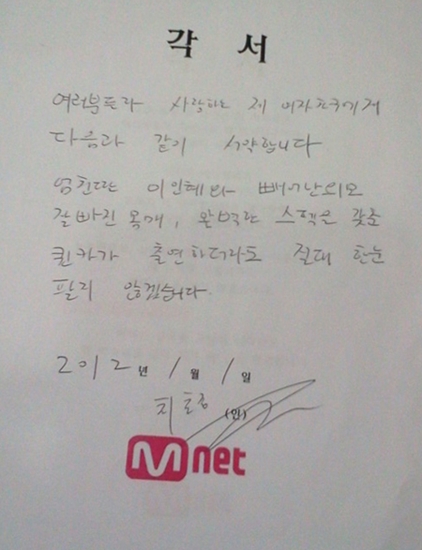 각 서
여러분들과 사랑하는 제 여자친구에게
다음과 같이 서약합니다
엄친딸 이인혜와 빼어난외모
잘빠진 몸매, 완벽한 스펙을 갖춘
퀸카가 출연하더라도 절대 한눈
팔지 않겠습니다.
2012년 1월 1일
(인)
Mnet